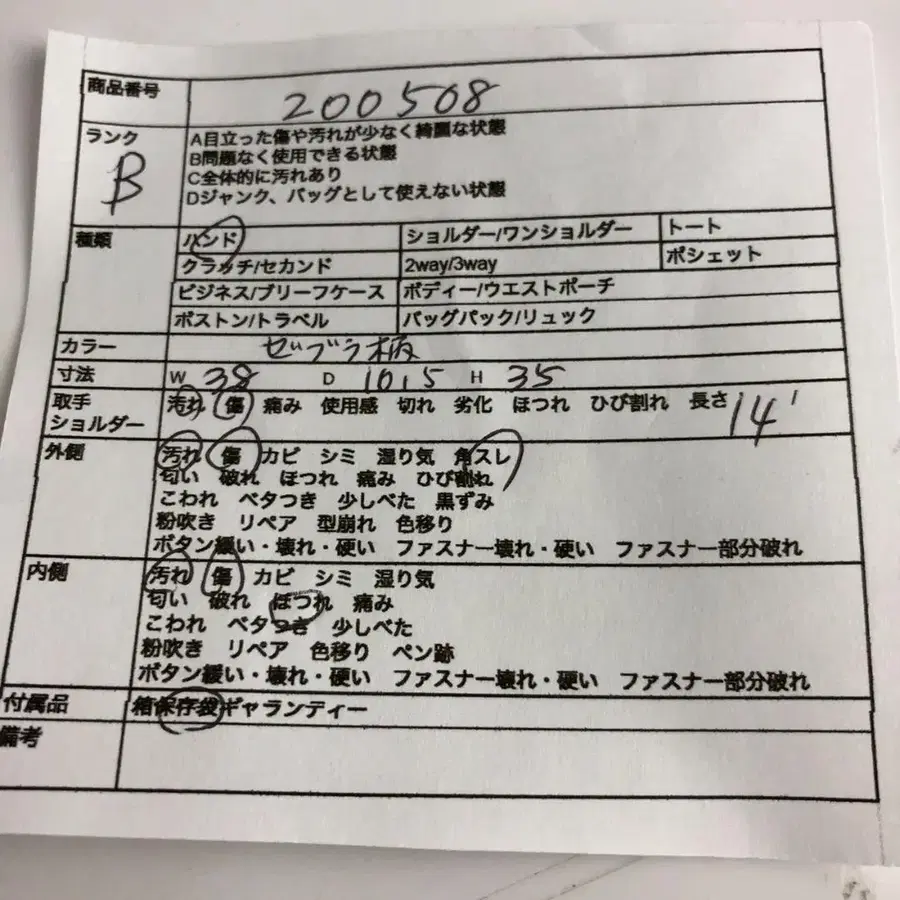 商品番号 200508
ランク B
A目立った傷や汚れが少なく綺麗な状態
B問題なく使用できる状態
C全体的に汚れあり
Dジャンク、バッグとして使えない状態
種類 ハンド ショルダー/ワンショルダー トート
クラッチ/セカンド 2way/3way ポシェット
ビジネス/ブリーフケース ボディー/ウエストポーチ
ボストン/トラベル バッグパック/リュック
カラー ゼブラ柄
寸法 W 38 D 10,5 H 35
取手 汚れ 傷 痛み 使用感 切れ 劣化 ほつれ ひび割れ 長さ 14
ショルダー
外側 汚れ 傷 カビ シミ 湿り気 角スレ
匂い 破れ ほつれ 痛み ひび割れ
こわれ ベタつき 少しべた 黒ずみ
粉吹き リペア 型崩れ 色移り
ボタン緩い・壊れ・硬い ファスナー壊れ・硬い ファスナー部分破れ
内側 汚れ 傷 カビ シミ 湿り気
匂い 破れ ほつれ 痛み
こわれ ベタつき 少しべた
粉吹き リペア 色移り ペン跡
ボタン緩い・壊れ・硬い ファスナー壊れ・硬い ファスナー部分破れ
付属品 箱保存袋ギャランティー
備考